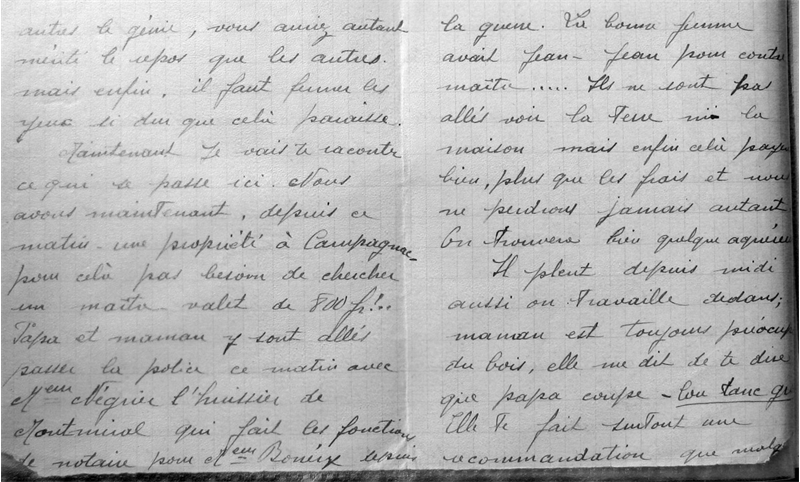 autres le génie, vous auriez autant
mérité le repos que les autres.
mais enfin, il faut fermer les
yeux si dur que celà paraisse.
Maintenant Je vais te raconter
ce qui se passe ici. Nous
avons maintenant, depuis ce
matin une propriété à Campagnac
pour celà pas besoin de chercher
un maître valet de 800 fr!..
Papa et maman y sont allés
passer la police ce matin avec
Meur Négrier l'huissier de
Montmiral qui fait les fonctions
de notaire pour Meur
la guerre. La bonne femme
avait Jean-Jean pour contre
maître..... Ils ne sont pas
allés voir la Terre ni la
maison mais enfin celà paye
bien, plus que les frais et nous
ne perdrons jamais autant
On Trouvera bien quelque
Il pleut depuis midi
aussi on Travaille dedans;
maman est toujours préocup
du bois, elle me dit de te dire
que papa coupe - lou tanc
Elle Te fait surtout une
recommandation que